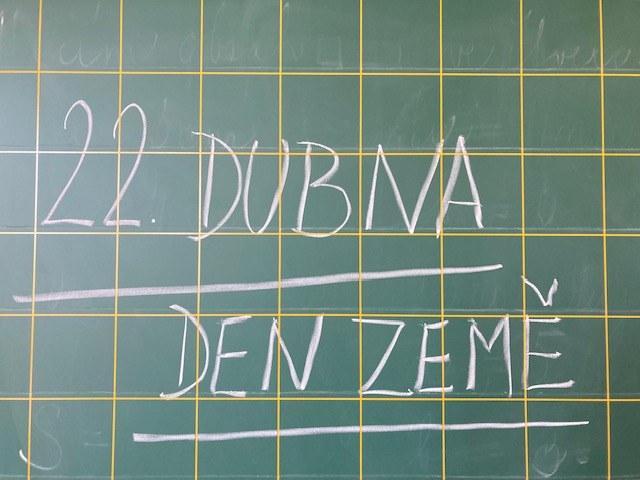 22. DUBNA
DEN ZEMĚ
S =